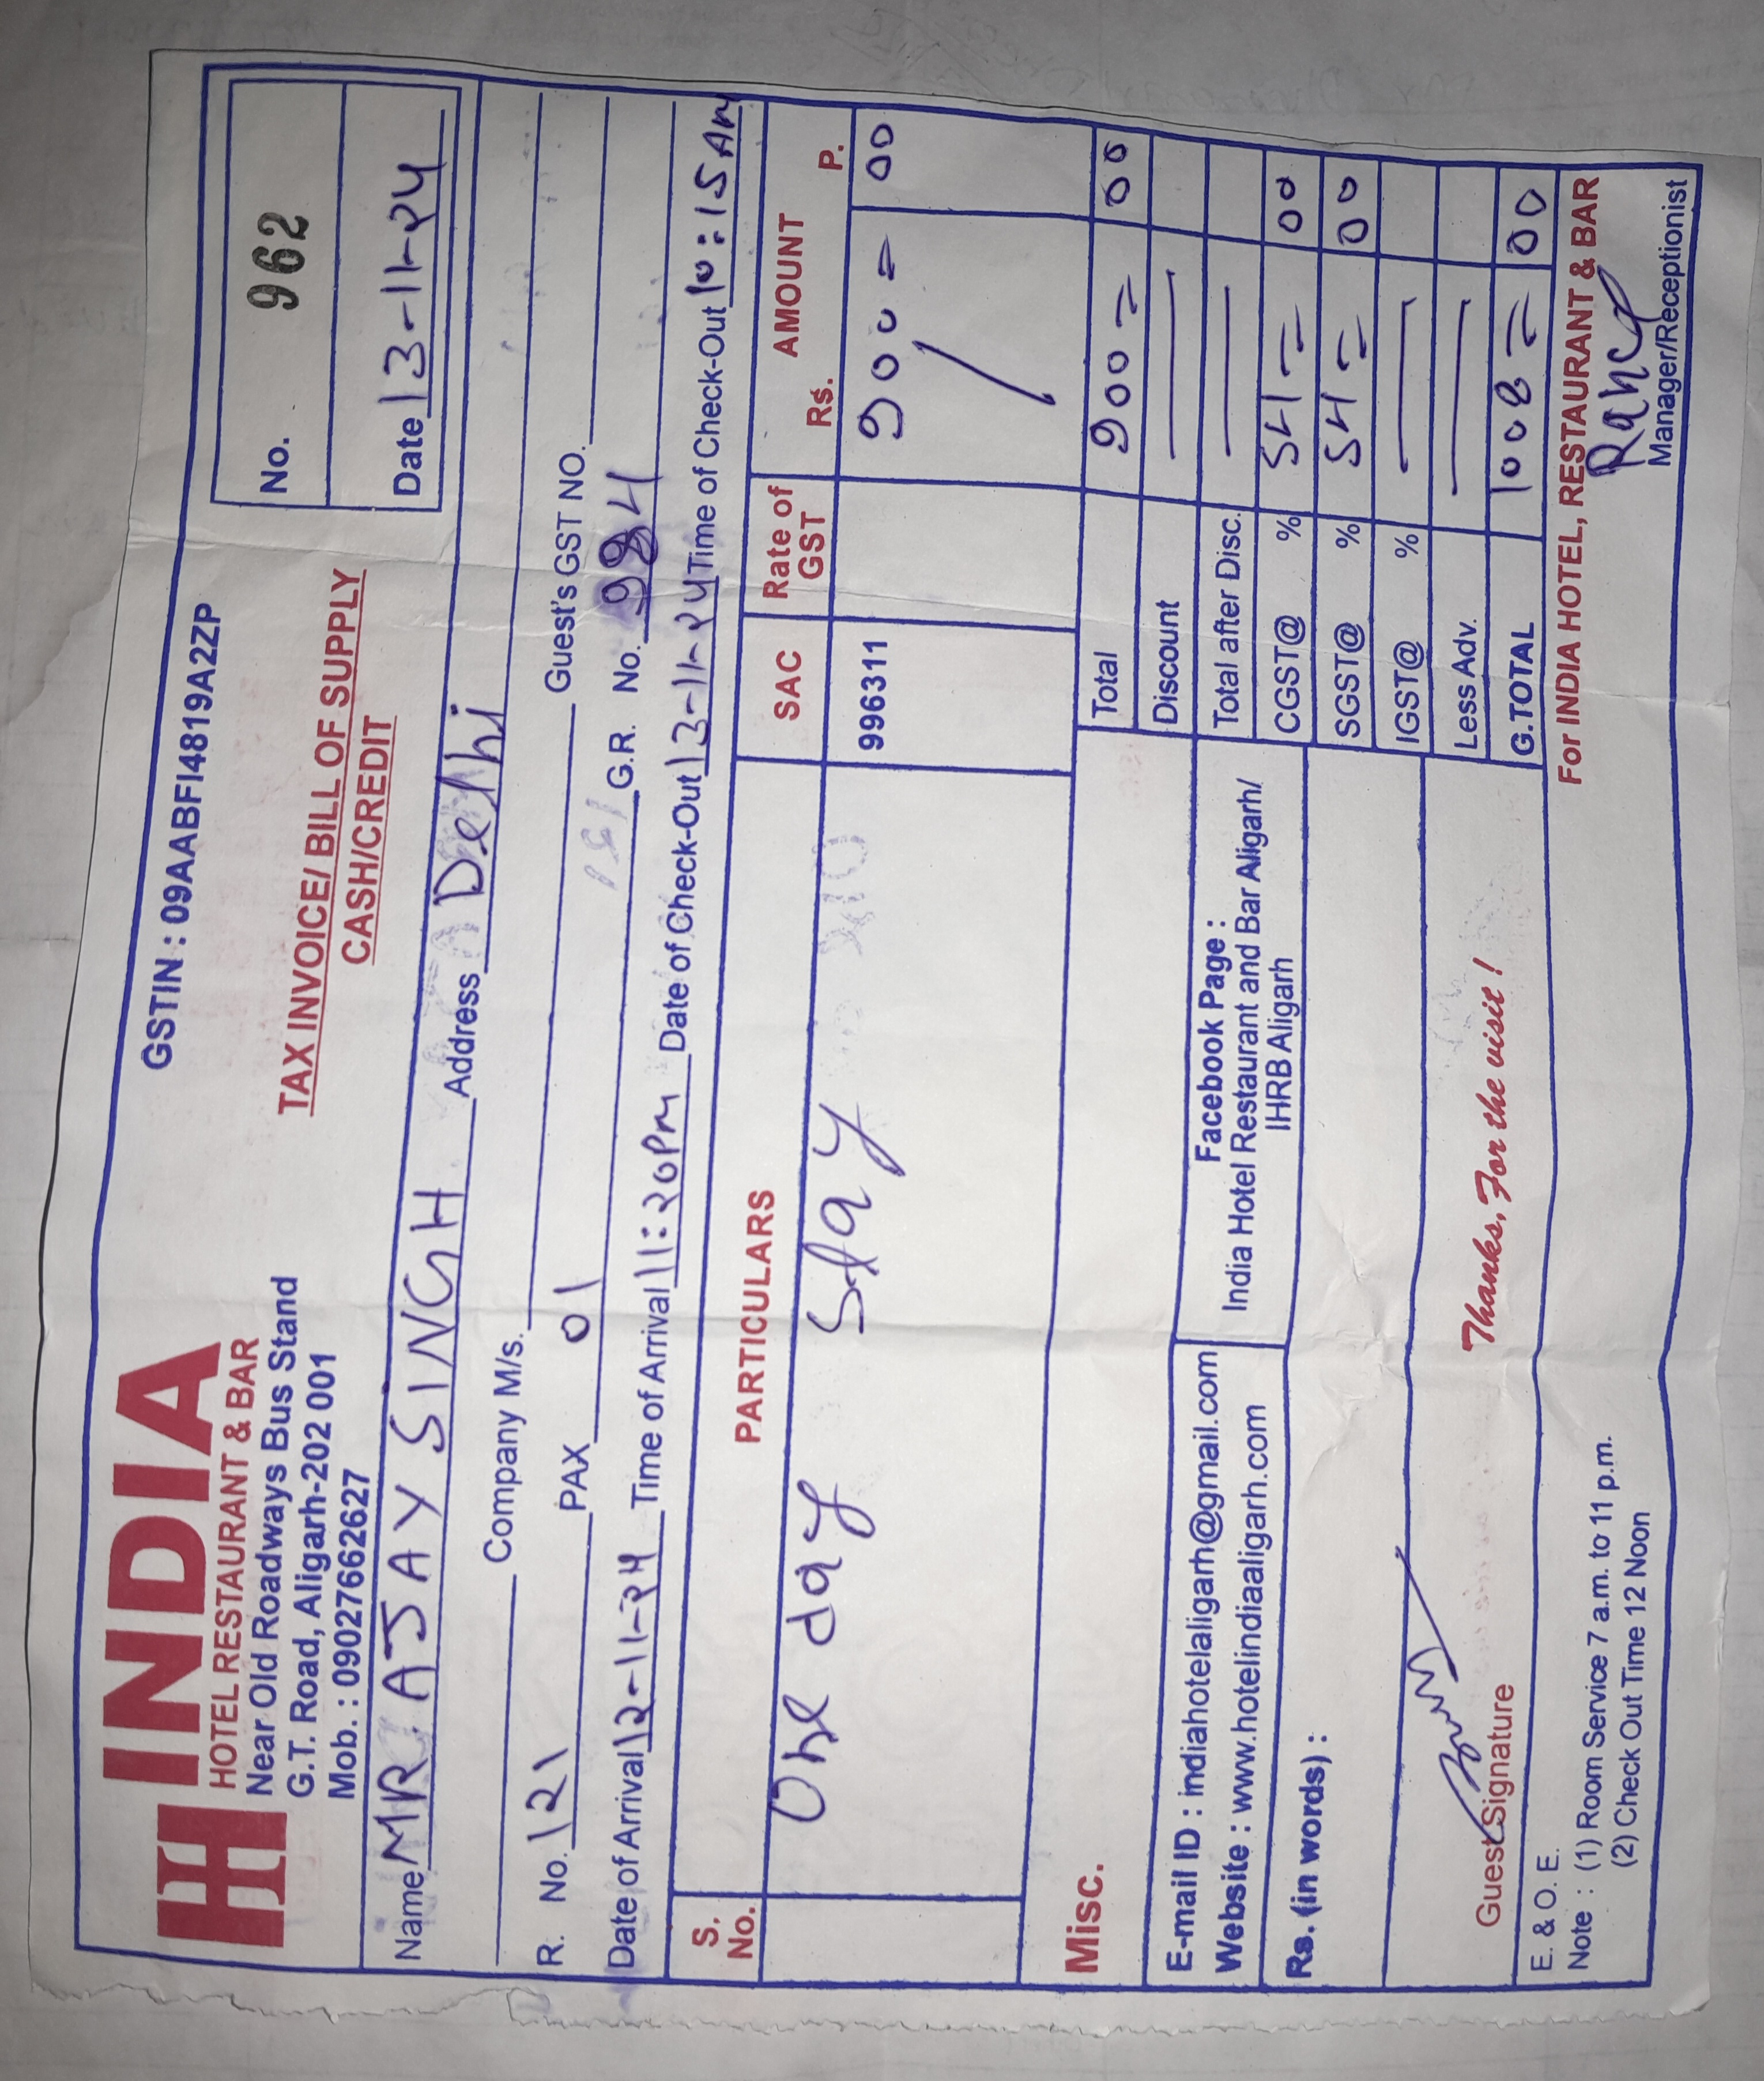 GSTIN : 09AABFI4819A2ZP
INDIA
HOTEL RESTAURANT & BAR
Near Old Roadways Bus Stand
G.T. Road, Aligarh-202 001
Mob. : 09027662627
TAX INVOICE/ BILL OF SUPPLY
CASH/CREDIT
No. 962
Date 13-11-24
Name MR. AJAY SINGH Address Delhi
Company M/s. Guest's GST NO.
R. No. 121 PAX 01 G.R. No. 984
Date of Arrival 12-11-24 Time of Arrival 11:20PM Date of Check-Out 13-11-24 Time of Check-Out 10:15AM
S. No. PARTICULARS SAC Rate of GST AMOUNT Rs. P.
One day Stay 996311 900= 00
Misc. Total 900= 00
Discount
Total after Disc.
CGST@ % 54= 00
SGST@ % 54= 00
IGST@ %
Less Adv.
G.TOTAL 1008= 00
E-mail ID : indiahotelaligarh@gmail.com
Website : www.hotelindiaaligarh.com
Facebook Page :
India Hotel Restaurant and Bar Aligarh/
IHRB Aligarh
Rs. (in words) :
Guest Signature
Thanks, For the visit !
For INDIA HOTEL, RESTAURANT & BAR
Manager/Receptionist
E. & O. E.
Note : (1) Room Service 7 a.m. to 11 p.m.
(2) Check Out Time 12 Noon